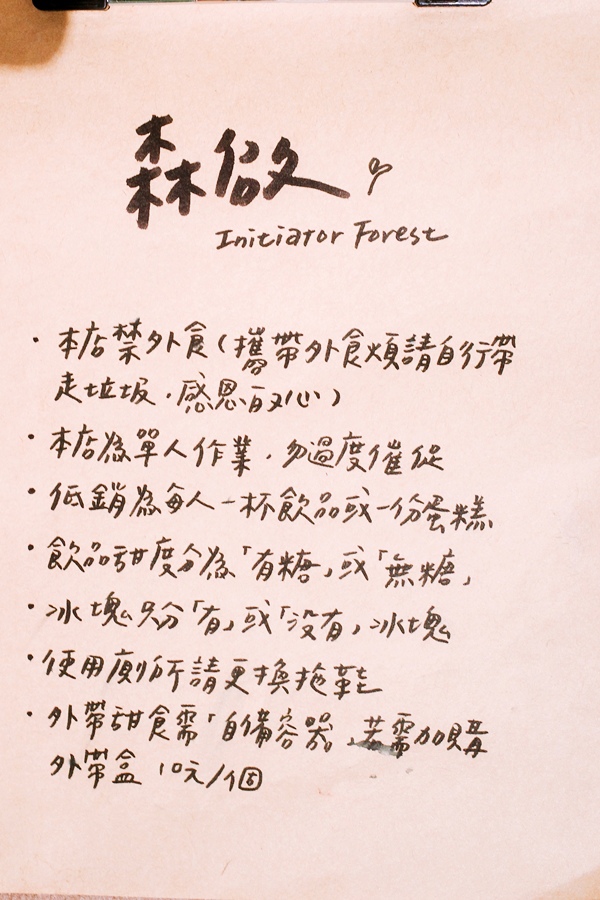 森做
Initiator Forest
· 本店禁外食(攜帶外食煩請自行帶
走垃圾,感恩的心)
· 本店為單人作業,勿過度催促
· 低銷為每人一杯飲品或一份蛋糕
· 飲品甜度分為「有糖」或「無糖」
· 冰塊只分「有」或「沒有」冰塊
· 使用廁所請更換拖鞋
· 外帶甜食需「自備容器」,若需加購
外帶盒 10元/個